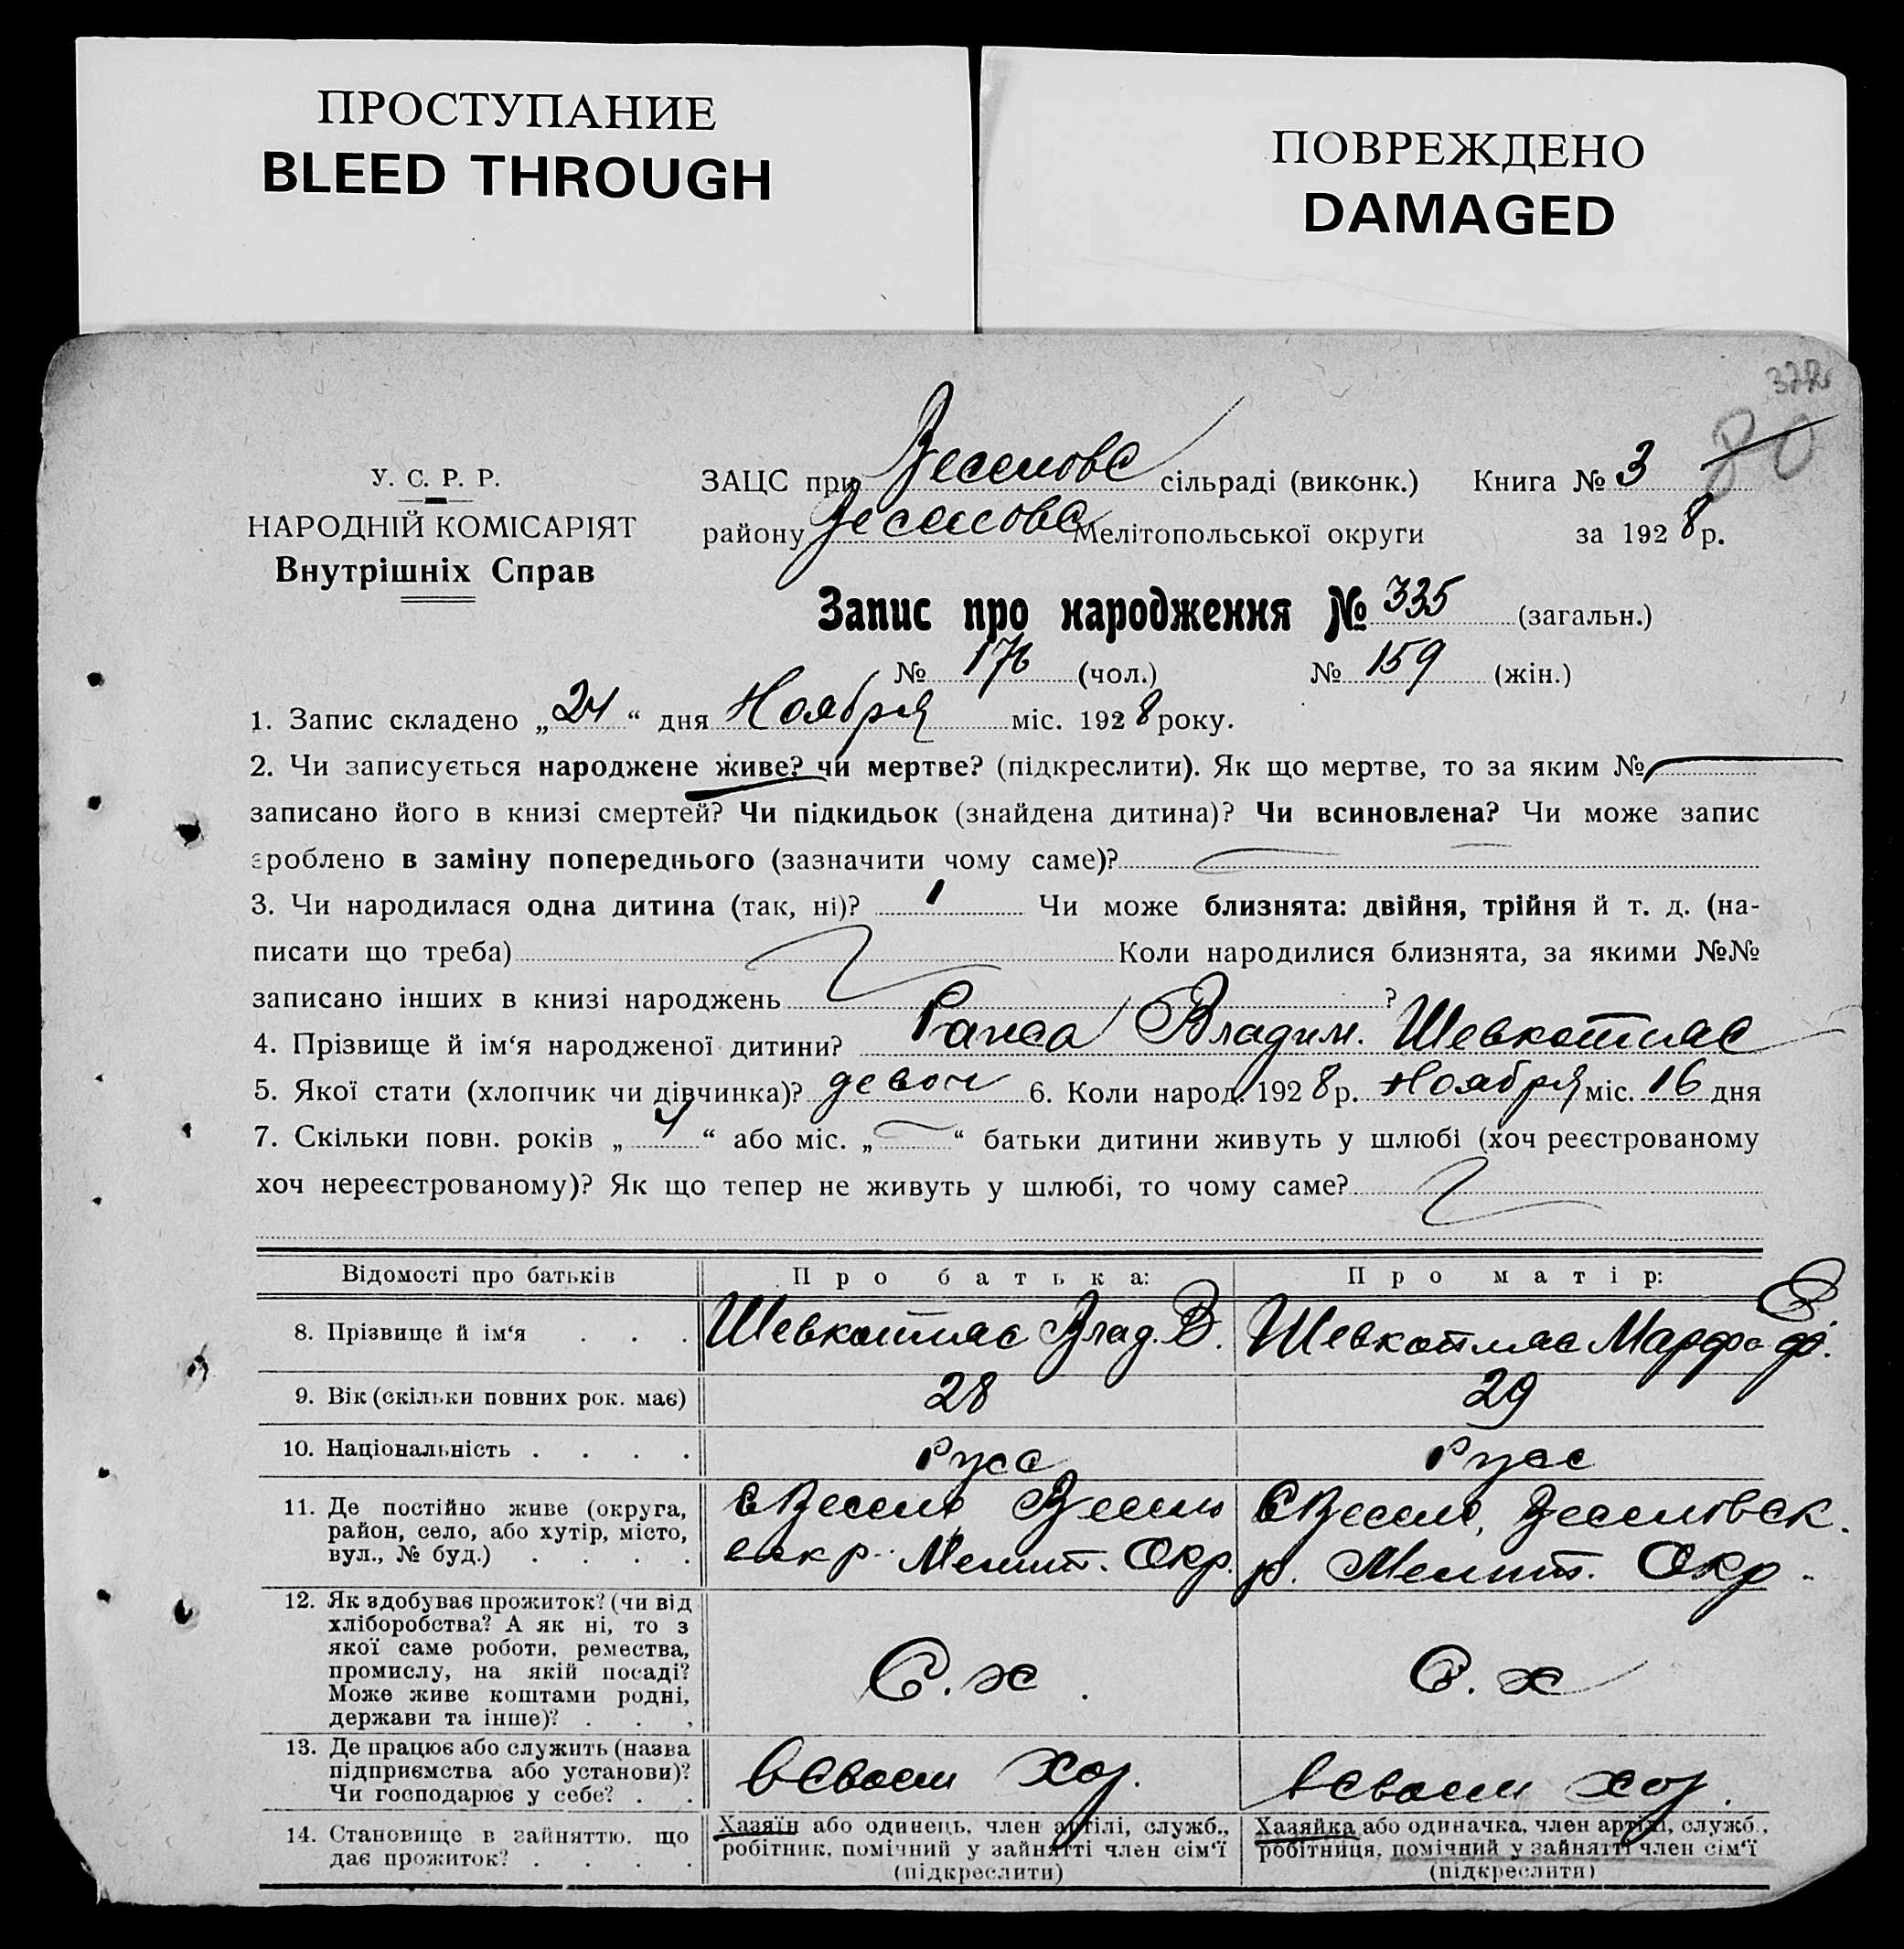 ПРОСТУПАНИЕ
BLEED THROUGH
ПОВРЕЖДЕНО
DAMAGED
80
У. С. Р. Р.
НАРОДНІЙ КОМІСАРІЯТ
Внутрішніх Справ
ЗАЦС при Веселовс сільраді (виконк.) Книга № 3
району Веселовс Мелітопольської округи за 1928 р.
Запис про народження № 335 (загальн.)
№ 176 (чол.) № 159 (жін.)
1. Запис складено „24“ дня Ноября міс. 1928 року.
2. Чи записується народжене живе? чи мертве? (підкреслити). Як що мертве, то за яким №
записано його в книзі смертей? Чи підкидьок (знайдена дитина)? Чи всиновлена? Чи може запис
зроблено в заміну попереднього (зазначити чому саме)?
3. Чи народилася одна дитина (так, ні)? 1 Чи може близнята: двійня, трійня й т. д. (на-
писати що треба) Коли народилися близнята, за якими №№
записано інших в книзі народжень ?
4. Прізвище й ім‘я народженої дитини? Раиса Владим. Шевкопляс
5. Якої стати (хлопчик чи дівчинка)? девоч 6. Коли народ. 1928 р. Ноября міс. 16 дня
7. Скільки повн. років „4“ або міс. „ “ батьки дитини живуть у шлюбі (хоч реєстрованому
хоч нереєстрованому)? Як що тепер не живуть у шлюбі, то чому саме?
Відомості про батьків Про батька: Про матір:
8. Прізвище й ім‘я . . . Шевкопляс Влад. В. Шевкопляс Марфа Ф.
9. Вік (скільки повних рок. має) 28 29
10. Національність . . . . Русс Русс
11. Де постійно живе (округа,
район, село, або хутір, місто,
вул., № буд.) . . . .
С Весело Весело
вск р. Мелит. Окр.
С Весело, Веселовск.
р. Мелит. Окр.
12. Як здобуває прожиток? (чи від
хліборобства? А як ні, то з
якої саме роботи, ремества,
промислу, на якій посаді?
Може живе коштами родні,
держави та інше)? . . .
С. х. С. х
13. Де працює або служить (назва
підприємства або установи)?
Чи господарює у себе? . .
в своем хоз. в своем хоз.
14. Становище в зайняттю, що
дає прожиток? . . . .
Хазяїн або одинець, член артілі, служб.,
робітник, помічний у зайнятті член сім‘ї
(підкреслити)
Хазяйка або одиначка, член артілі, служб.,
робітниця, помічний у зайнятті член сім‘ї
(підкреслити)